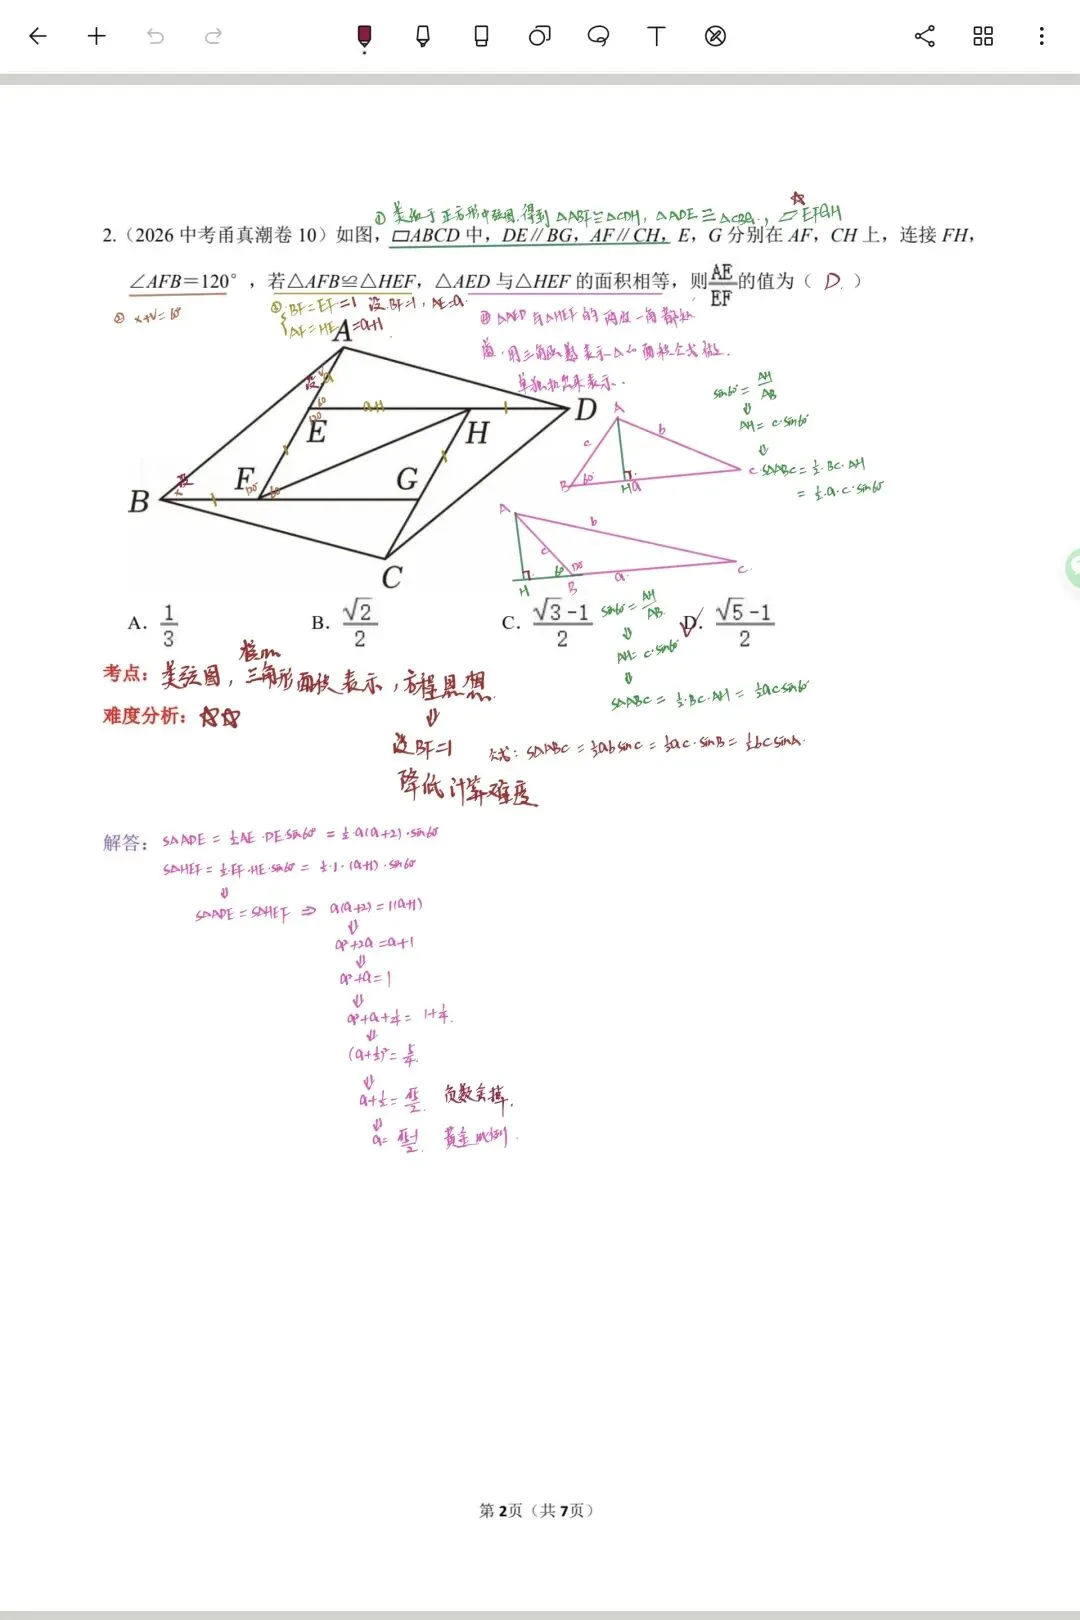 ① 类似于正方形中弦图.得到 △ABF≌△CDH, △ADE≌△CBG, ▱EFGH
2.（2026 中考甬真潮卷 10）如图，▱ABCD 中，DE∥BG，AF∥CH，E，G 分别在 AF，CH 上，连接 FH，
∠AFB＝120°，若△AFB≌△HEF，△AED 与△HEF 的面积相等，则AE/EF的值为（ D. ）
② x+y=60°
③ BF=EF=1 设 BF=1, AE=a.
AF=HE=a+1
④ △AED 与△HEF 的 两边一角都知
用三角函数表示△的面积公式做.
单独拉出来表示.
A
设 y a
60°
a+1
1
D
120°
E
H
F
G
设
x
B
1
120°
60°
C
A
c
b
B
60°
H
a
C
sin60°=AH/AB
⇓
AH=c·sin60°
⇓
S△ABC=½·BC·AH
=½·a·c·sin60°
A
b
c
60°
120°
H
B
a
C
sin60°=AH/AB
⇓
AH=c·sin60°
⇓
S△ABC=½·BC·AH=½acsin60°
A. 1/3
B. √2/2
C. (√3-1)/2
D. (√5-1)/2
考点：类弦图，三角形面积表示，方程思想.
难度分析：☆☆
⇓
设BF=1
公式：S△ABC=½absinC=½ac·sinB=½bcsinA.
降低计算难度
解答：S△ADE=½AE·DE·sin60°=½·a(a+2)·sin60°
S△HEF=½·EF·HE·sin60°=½·1·(a+1)·sin60°
⇓
S△ADE=S△HEF ⇒ a(a+2)=1(a+1)
⇓
a²+2a=a+1
⇓
a²+a=1
⇓
a²+a+¼=1+¼.
⇓
(a+½)²=5/4.
⇓
a+½=√5/2. 负数舍掉.
⇓
a=(√5-1)/2. 黄金比例.
第 2页（共 7页）